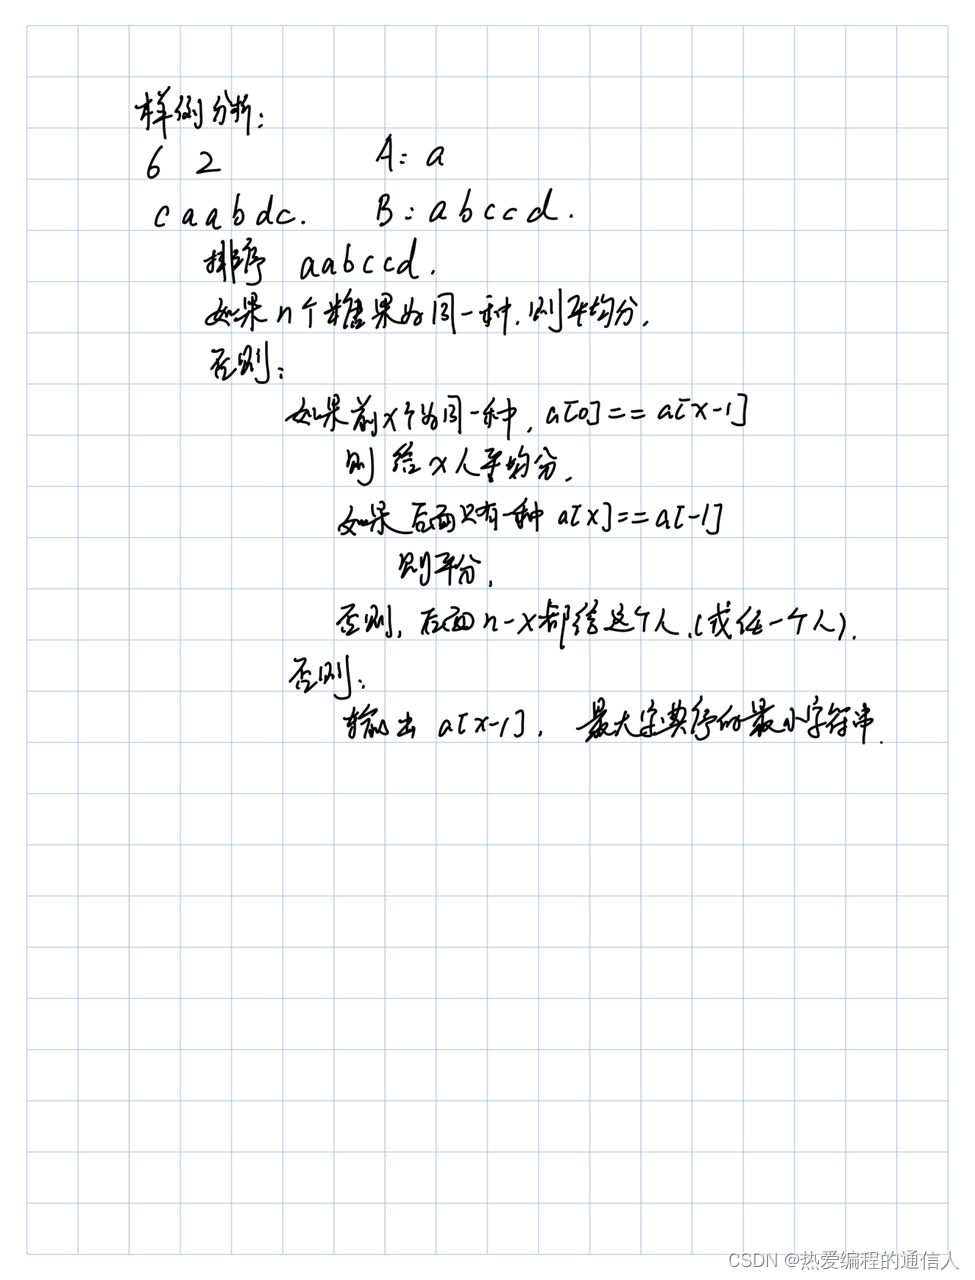 样例分析:
6 2 A: a
caabdc. B: abccd.
排序 aabccd.
如果n个糖果为同一种,则平均分.
否则:
如果前x个为同一种, a[0]==a[x-1]
则给x人平均分.
如果后面只有一种 a[x]==a[-1]
则平分.
否则, 后面n-x都给这个人.(或任一个人).
否则:
输出 a[x-1]. 最大字典序的最小字符串.
CSDN @热爱编程的通信人